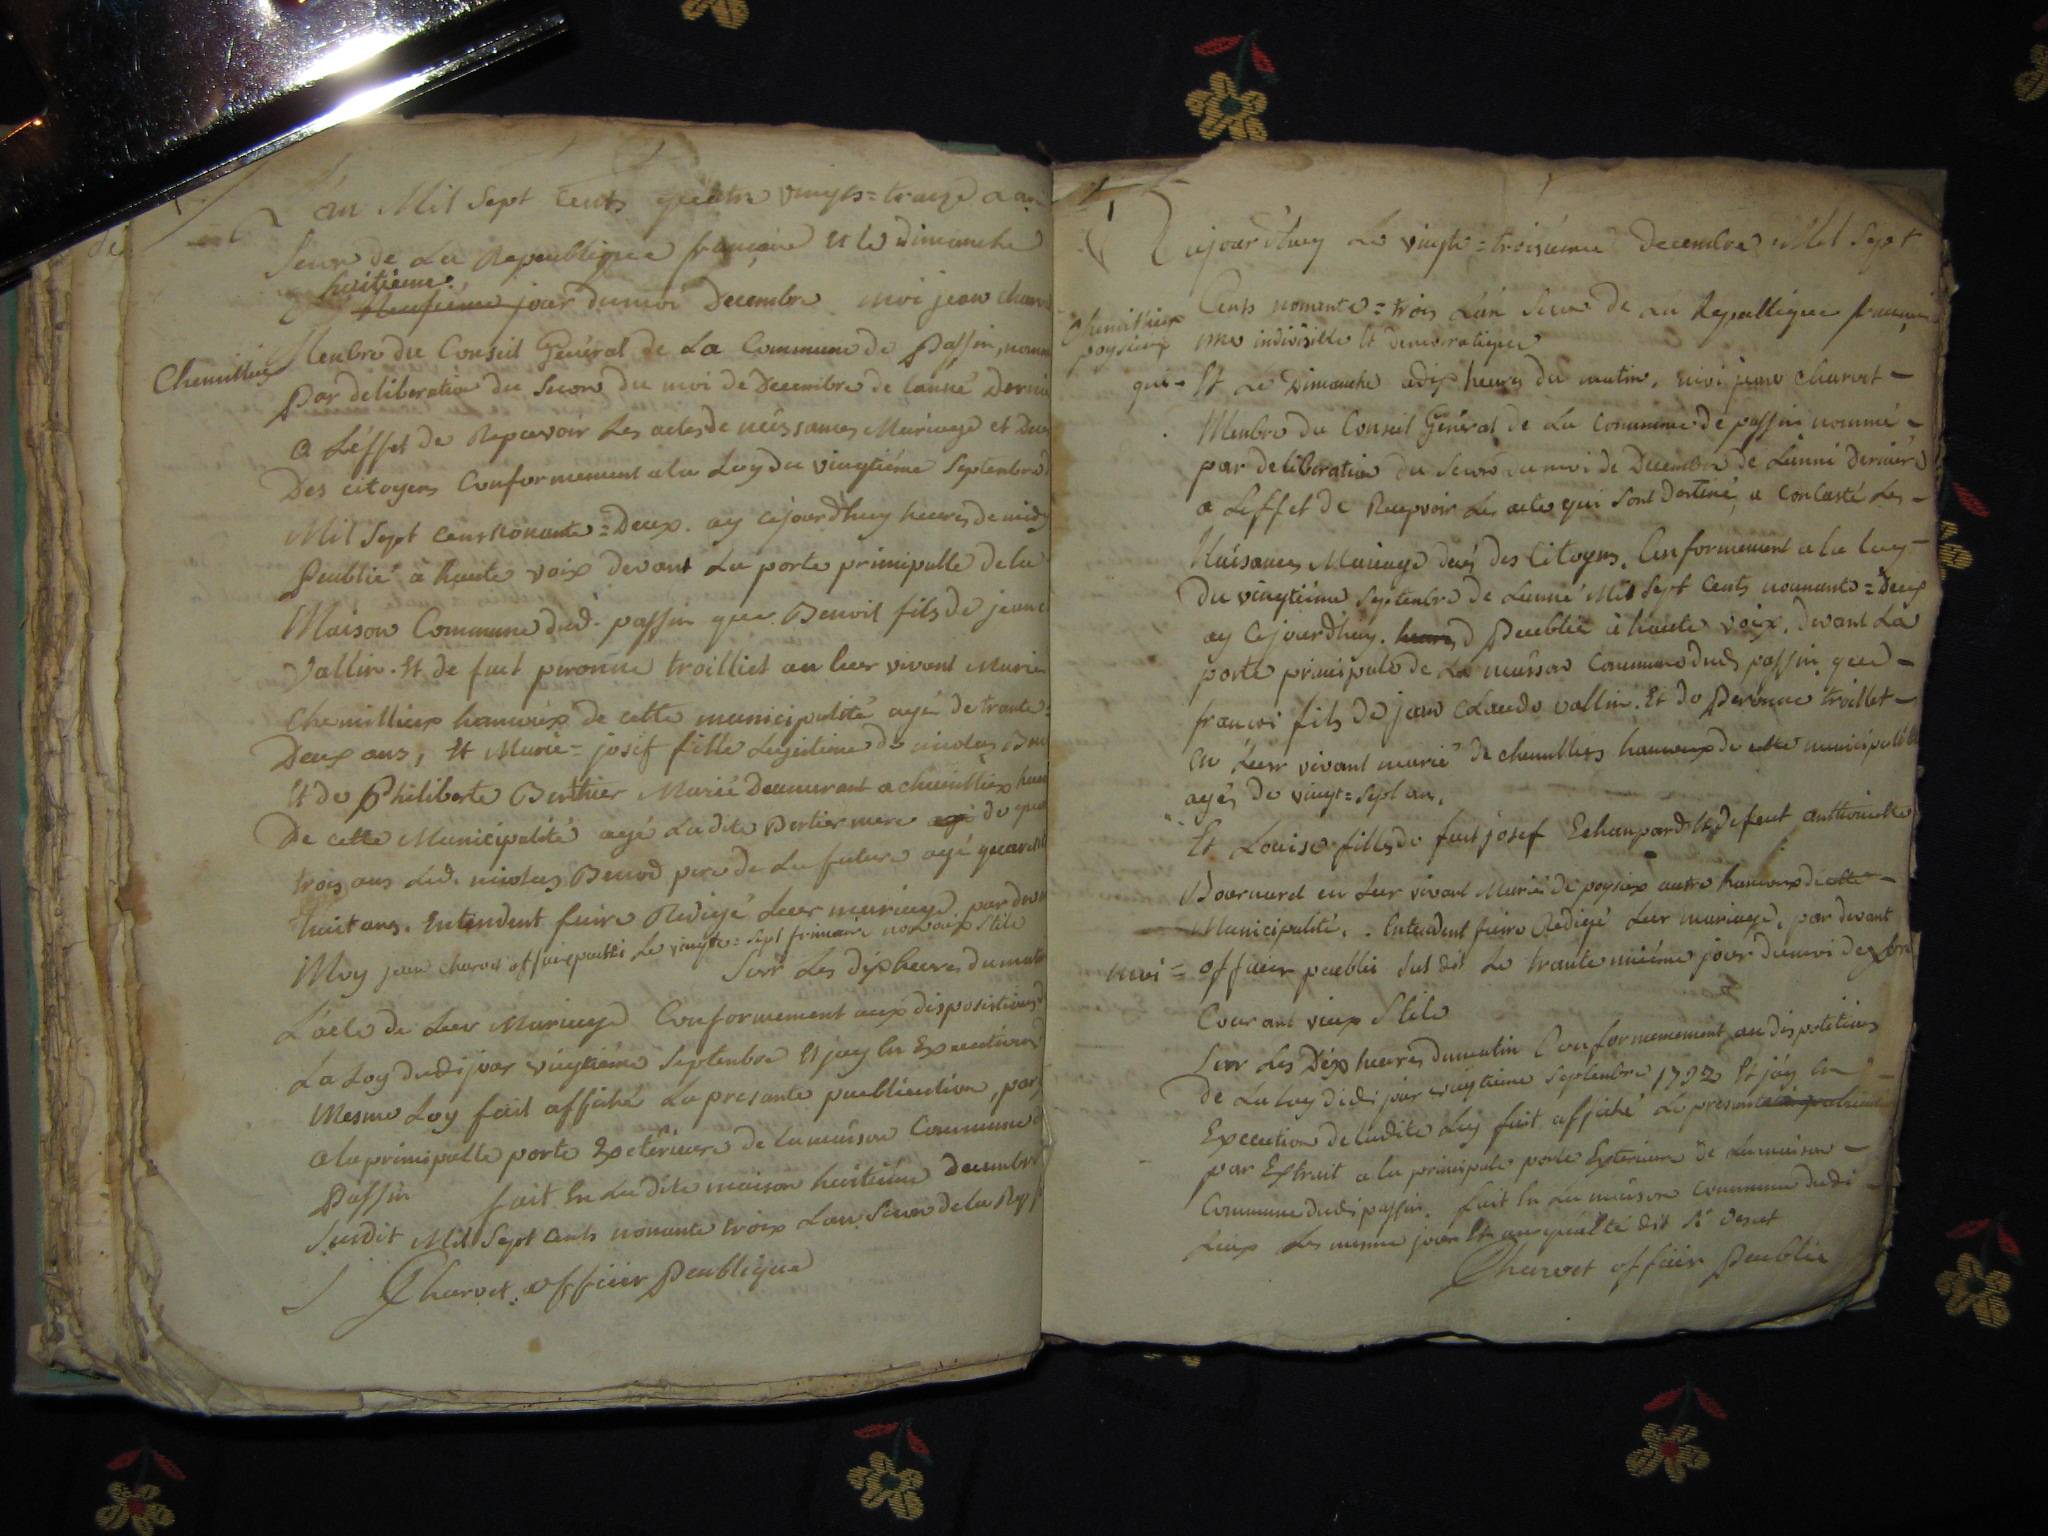 L'an Mil Sept Cents quatre vingts = traize
de La Republique françoise Et le dimanche
huitieme
Neufieme jour du moi Decembre Moi jean Charvet
Chemillieu
Menbre du Conseil Général de La Commune de Passin,
Par deliberation du Second du moi de Decembre de lanné
a L'effet de Recevoir Les actes de nêissances Mariage et
Des citoyens Conformement a la Loy du vingtiéme Septembre
Mil Sept Cens Nonante = Deux. ay cejourdhuy heures de midy
Peublié à haute voix devant La porte principalle de la
Maison Commune dud. passin que Benoit fils de jean
Vallin. Et de fut peronne troilliet an leur vivant Marié
Chemillieux hameux de cette municipalité agé de trante =
Deux ans, Et Marie = josef fille Legistime de nicolas
Et de Philiberte Berthier Marié Demeurant a chemillieux
De cette Municipalité agé Ladite Bertier mere de
trois ans Led. nicolas Benod pere de La future agé
huit ans. Entendent faire Redigé Leur mariage par devant
Moy jean Charvet officier public Le vingte = sept frimaire nouveux Stile
Sur Les dix heures du matin
L'acte de Leur Mariage Conformement aux dispositions
La Loy dudi jour vingtiéme Septembre Et jay En Execution
Mesme Loy fait affiché La presante publication, par
a la principalle porte Exterieure de La maison Commune
Passin fait En La dite maison huitiéme Decembre
Susdit Mil Sept Cents nonante troix L'an Second de la Rep
Charvet officier Peublique
Cejourd'huy Le vingte = troisiéme Decembre Mil Sept
Cents nonante = trois L'an Second de La Republique françoise
chemillieux
poysieux
une indivisible Et democratique
qui = Et Le Dimanche adix heures du matin, moi jean Charvet =
Menbre du Conseil Général de La Commune de passin nommé =
par deliberation du Second du moi de Decembre de L'anné dernière
a L'effet de Recepvoir Les actes qui Sont Destiné a Contasté Les =
Naisances Mariage decés des Citoyens. Conformement a la Loy =
Du vingtiéme Septembre de L'anné Mil Sept Cents nonante = Deux
ay Cejourdhuy. Peublié à haute voix. Devant La
porte principale de La maison Commune dud. passin que =
francoi fils de jean Claude vallin. Et de Peronne troilliet =
En Leur vivant marié de chemillieu hameux de cette municipalité
agés de vingt = Sept an.
Et Louise fille de feut josef Echanpard Et defeut anthoinette
en Leur vivant Marié de poysieux autre hameux de cette =
Municipalité. Entendent faire Redigé Leur mariage, par devant
moi = officier publie Sus dit Le trante uniéme jour du moi de xbre
Courant vieux Stile
Sur Les Dix heures du matin Conformement au dispositions
de La Loy dudi jour vingtiéme Septembre 1792 Et jáy En
Execution de ladite Loy fait affiché La presante
par Extrait a La principale porte Exterieure de La maison =
Commune dudi passin. fait En La maison Commune dudi =
Lieux Les mesme jour Et an qualité dit Sé Desut
Charvet officier Peublie